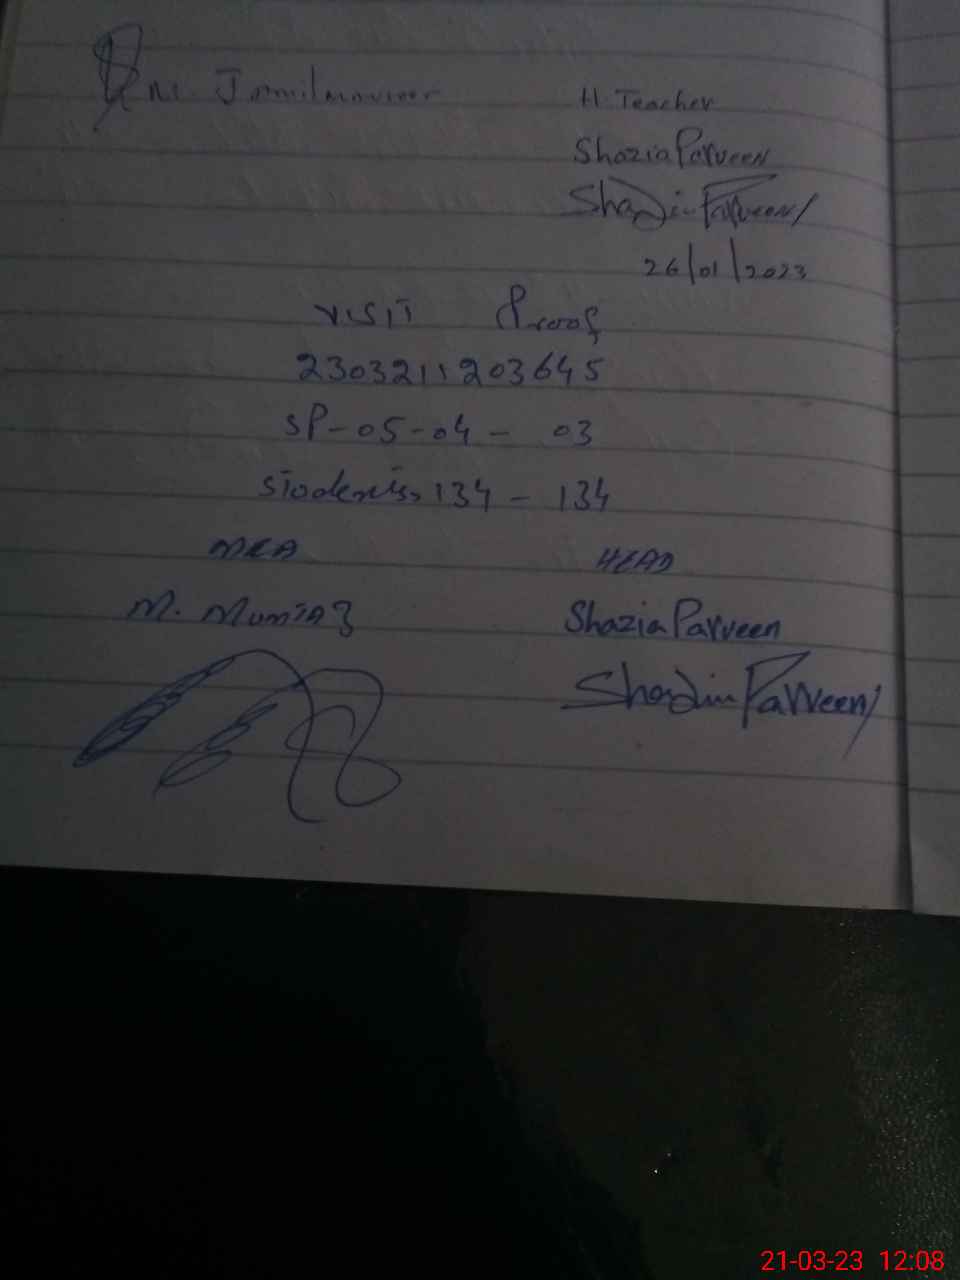 H. Teacher
Shazia Parveen
Shazia Parveen
26/01/2023
VISIT Proof
2303211203645
SP-05-04- 03
Stodents 134 - 134
MEA HEAD
M. MumTAZ Shazia Parveen
Shazia Parveen
21-03-23 12:08